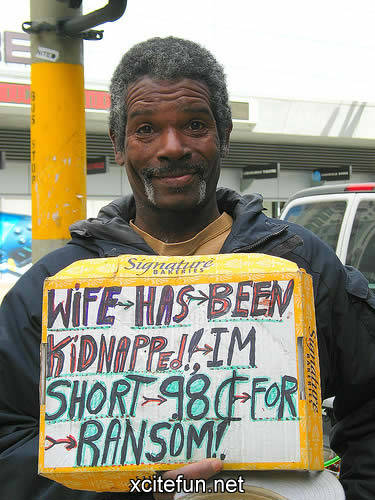 BUS STOP
Signature
BAKERIES
WiFE→HAS→BEEN
KiDNAPPed!!→IM
SHORT→98¢→FOR
→RANSOM!
Signature
xcitefun.net